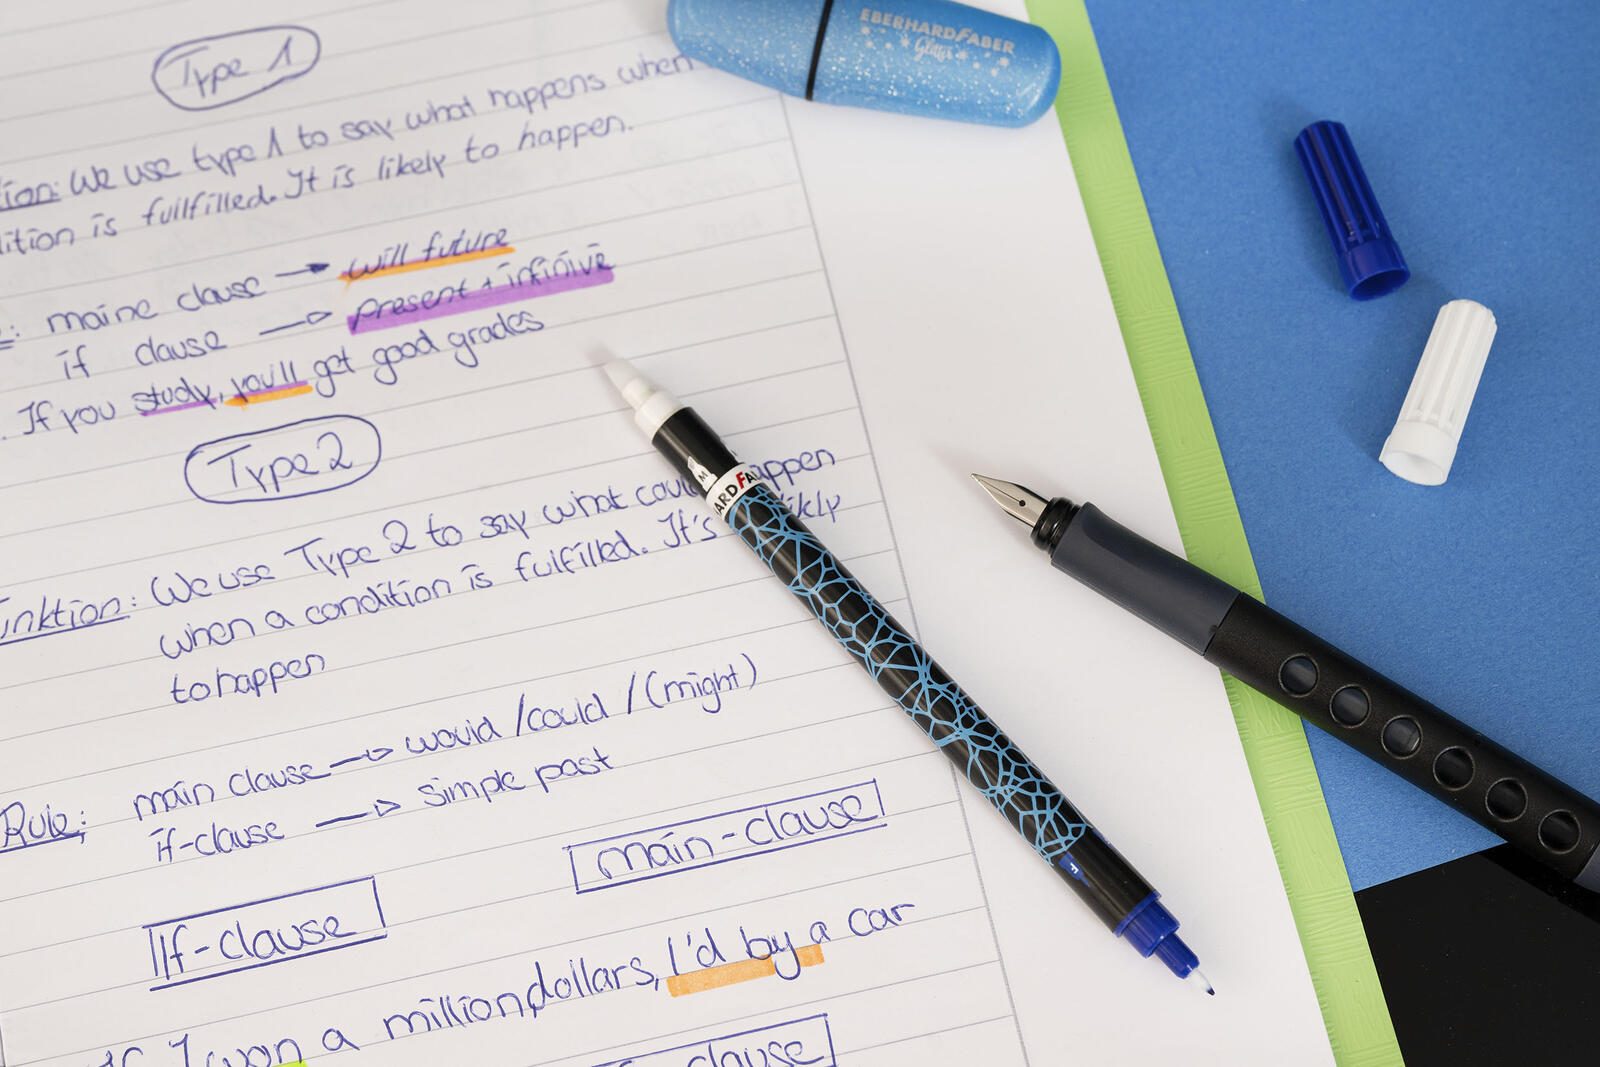 EBERHARDFABER
Glitter
Type 1
tion: We use type 1 to say what happens when
dition is fullfilled. It is likely to happen.
: maine clause → will future
if clause → present + infinive
. If you study, you'll get good grades
Type 2
inktion: We use Type 2 to say what coul appen
when a condition is fulfilled. It's ikly
to happen
ARDFA
Rule: main clause → would / could / (might)
if-clause → simple past
main-clause
If-clause
If I won a million dollars, I'd by a car
clause
F